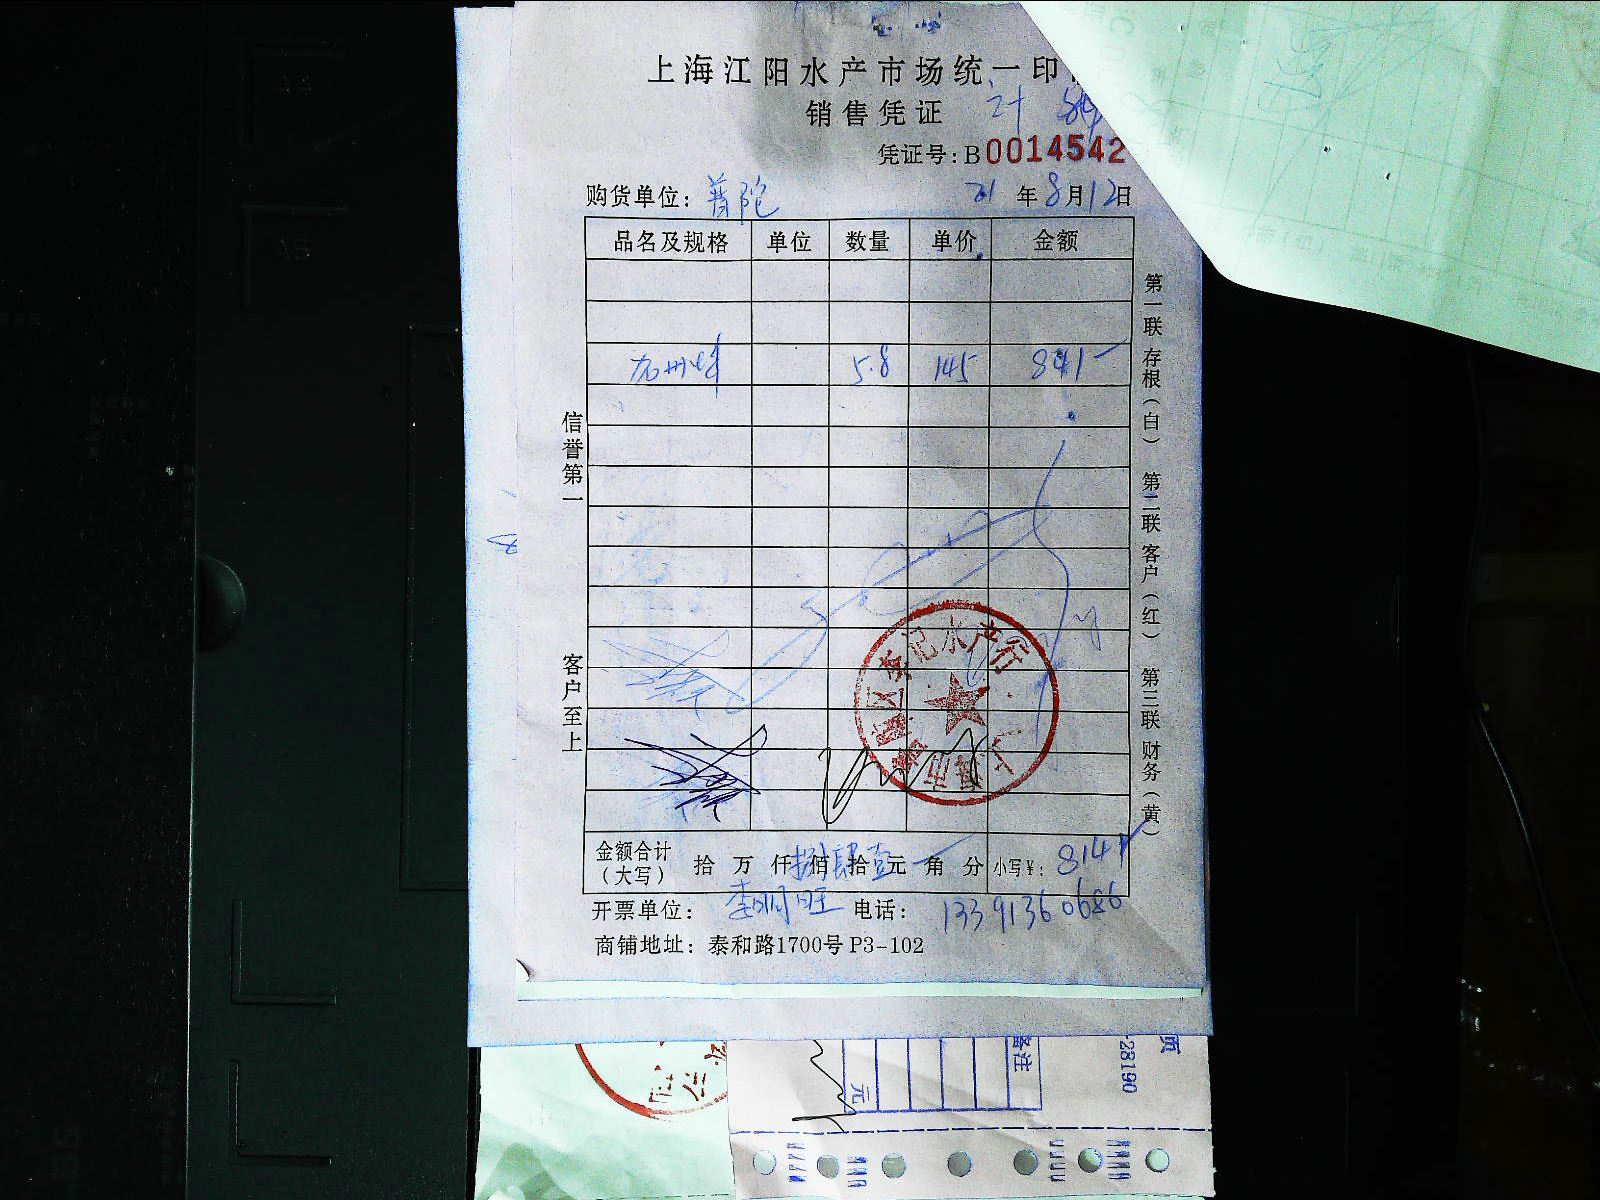 上海江阳水产市场统一印
销售凭证
凭证号:B0014542
购货单位: 普陀 21年8月12日
品名及规格 单位 数量 单价 金额
加州鲈 5.8 145 841
信誉第一
客户至上
第一联 存根(白) 第二联 客户(红) 第三联 财务(黄)
水产行
金额合计(大写) 拾万仟捌佰肆拾壹元角分 小写¥: 814
开票单位: 李明旺 电话: 13391360686
商铺地址: 泰和路1700号 P3-102
备注
元
页
-28190